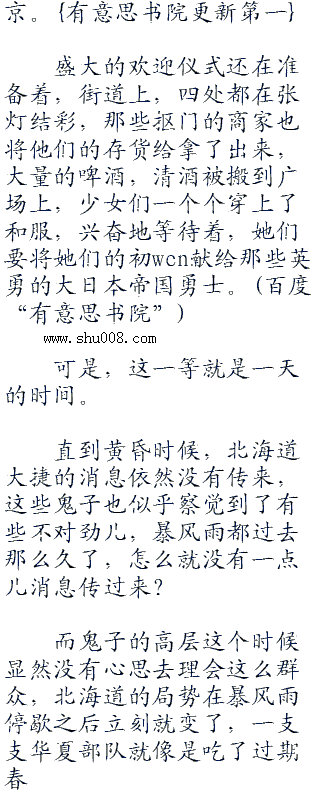 京。{有意思书院更新第一}
盛大的欢迎仪式还在准
备着，街道上，四处都在张
灯结彩，那些抠门的商家也
将他们的存货给拿了出来，
大量的啤酒，清酒被搬到广
场上，少女们一个个穿上了
和服，兴奋地等待着，她们
要将她们的初wcn献给那些英
勇的大日本帝国勇士。(百度
“有意思书院”)
www.shu008.com
可是，这一等就是一天
的时间。
直到黄昏时候，北海道
大捷的消息依然没有传来，
这些鬼子也似乎察觉到了有
些不对劲儿，暴风雨都过去
那么久了，怎么就没有一点
儿消息传过来？
而鬼子的高层这个时候
显然没有心思去理会这么群
众，北海道的局势在暴风雨
停歇之后立刻就变了，一支
支华夏部队就像是吃了过期
春